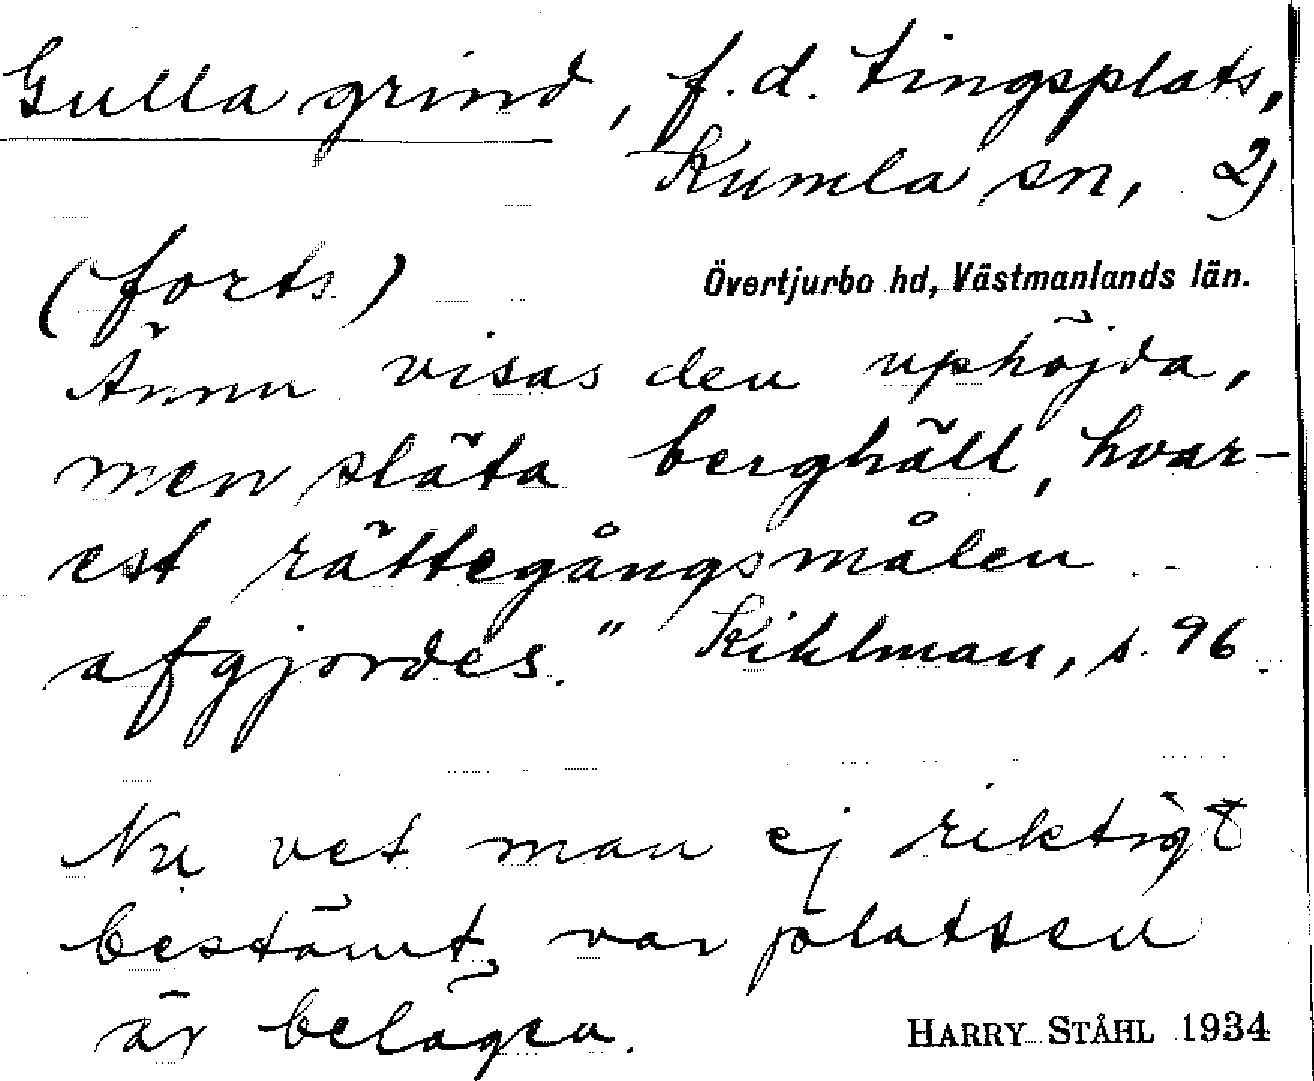 Gulla grind, f.d. tingsplats,
Kumla sn, 2)
(forts.)
Övertjurbo hd, Västmanlands län.
Ännu visas den uphöjda,
men släta berghäll, hvar-
est rättegångsmålen
afgjordes." Kihlman, s. 96.
Nu vet man ej riktigt
bestämt, var platsen
är belägen.
HARRY STÅHL 1934